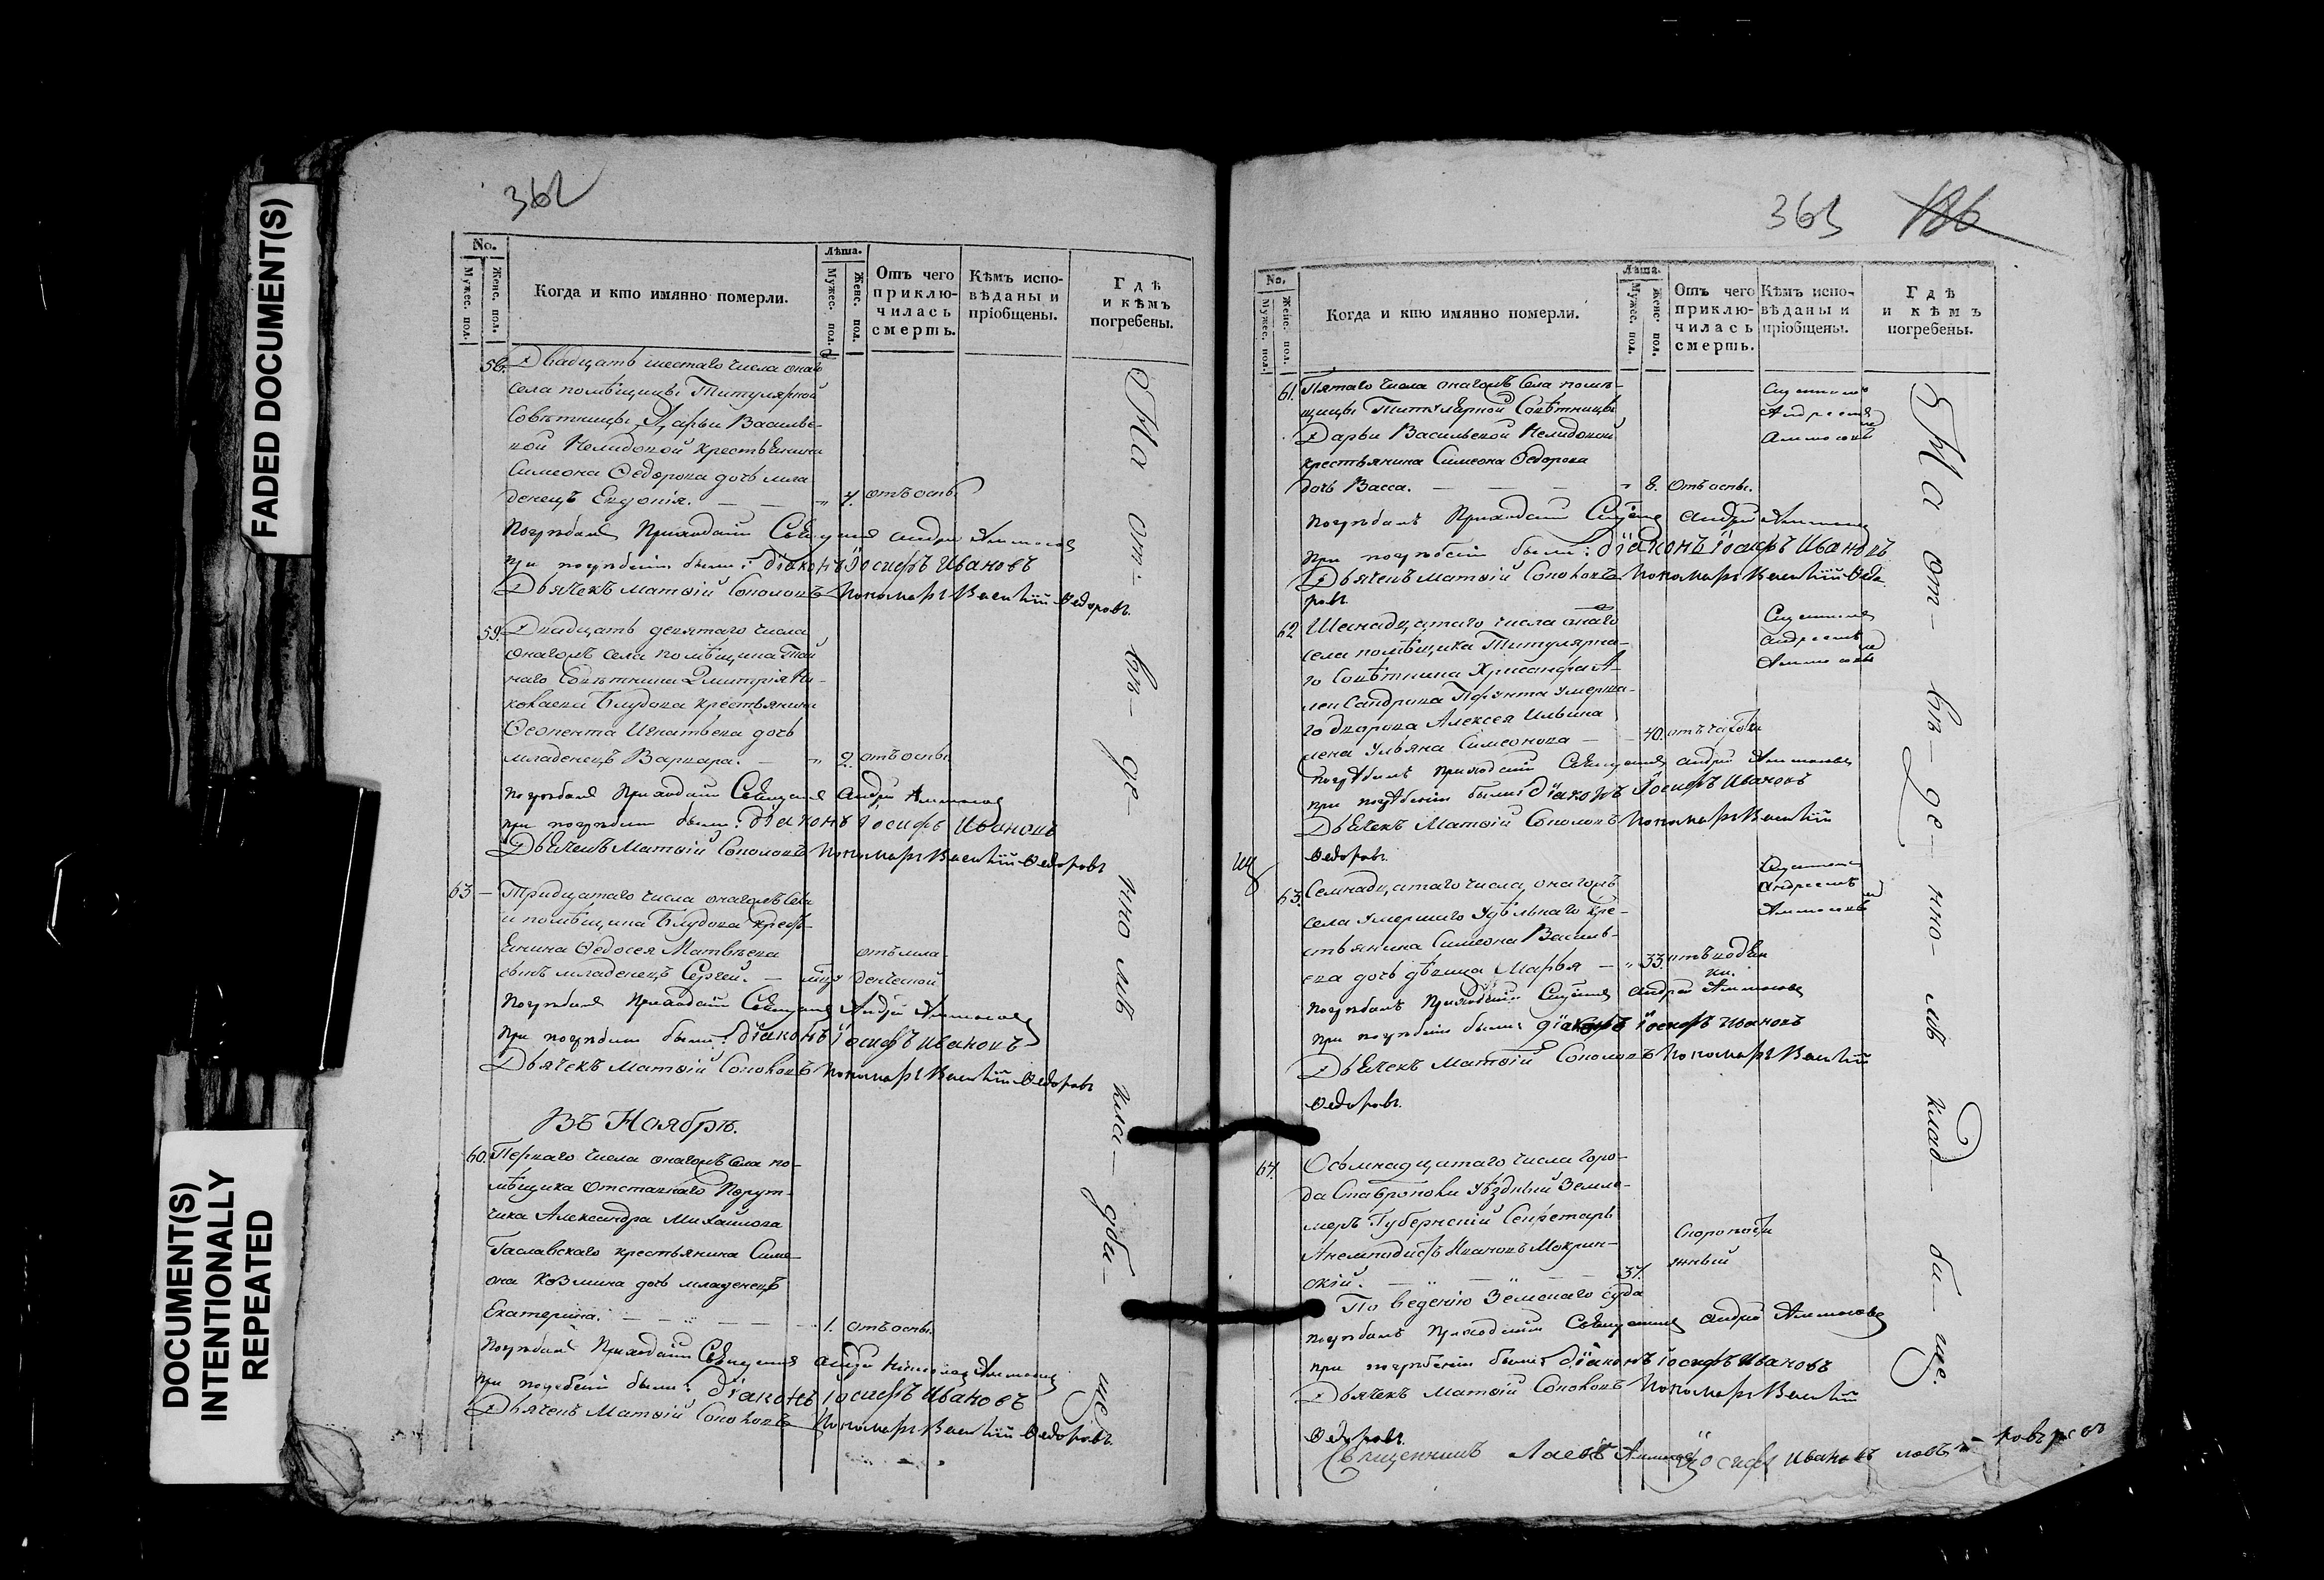 FADED DOCUMENT(S)
DOCUMENT(S)
INTENTIONALLY
REPEATED
362
No.
Мужес. пол.
Женс. пол.
Когда и кто имянно померли.
Лѣта.
Мужес. пол.
Женс. пол.
Отъ чего
приклю-
чилась
смерть.
Кѣмъ испо-
вѣданы и
пріобщены.
Гдѣ
и кѣмъ
погребены.
58. Двадцать шестаго числа онаго
села помѣщицы Титулярной
Совѣтницы Дарьи Василье-
вой Нелидовой крестьянина
Симеона Ѳедорова дочь мла
денецъ Евдокія. — — " 4. отъ оспы.
Погребалъ Приходскій Священникъ Андрей Аммосовъ
при погребеніи были: діаконъ Іосифъ Ивановъ
Дьячекъ Матѳій Соколовъ Пономарь Василій Ѳедоровъ.
59. Двадцать девятаго числа
онагожъ села помѣщика Тай
наго Совѣтника Дмитрія Ни-
колаева Блудова крестьянина
Игнатьева дочь
младенецъ Варвара. — " 2. отъ оспы
Погребалъ Приходскій Священникъ Андрей Аммосовъ
при погребеніи были: діаконъ Іосифъ Ивановъ
Дьячекъ Матѳій Соколовъ Пономарь Василій Ѳедоровъ
63 — Тридцатаго числа онагожъ села
и помѣщика Блудова кресть-
янина Ѳедосея Матвѣева
сынъ младенецъ Сергей. —
отъ мла-
денческой
Погребалъ Приходскій Священникъ Андрей Аммосовъ
при погребеніи были: діаконъ Іосифъ Ивановъ
Дьячекъ Матѳій Соколовъ Пономарь Василій Ѳедоровъ
Въ Ноябрѣ.
60. Перваго числа онагожъ села по-
мѣщика Отставнаго Порут-
чика Александра Михайлова
Таславскаго крестьянина Симе-
она Козмина дочь младенецъ
Екатерина. — — — 1. отъ оспы.
Погребалъ Приходскій Священникъ Андрей Аммосовъ
при погребеніи были: діаконъ Іосифъ Ивановъ
Дьячекъ Матѳій Соколовъ Пономарь Василій Ѳедоровъ.
На от- ве- де- нно мъ кла- дби- ще
363 186
No.
Мужес. пол.
Женс. пол.
Когда и кто имянно померли.
Лѣта.
Мужес. пол.
Женс. пол.
Отъ чего
приклю-
чилась
смерть.
Кѣмъ испо-
вѣданы и
пріобщены.
Гдѣ
и кѣмъ
погребены.
61. Пятаго числа онагожъ села помѣ-
щицы Титулярной Совѣтницы
Дарьи Васильевой Нелидовой
крестьянина Симеона Ѳедорова
дочь Васса. — — — " 8. Отъ оспы.
Священникомъ
Андреемъ
Аммосовымъ
Погребалъ Приходскій Священникъ Андрей Аммосовъ
при погребеніи были: діаконъ Іосифъ Ивановъ
Дьячекъ Матѳій Соколовъ Пономарь Василій Ѳедо
ровъ.
62 Шестнадцатаго числа онаго
села помѣщика Титулярна-
го Совѣтника Хрисанфа А-
лександрова умерша-
го дворова Алексея Ильина
жена Ульяна Симеонова — — 40. отъ чахотки
Священникомъ
Андреемъ
Аммосовымъ
Погребалъ Приходскій Священникъ Андрей Аммосовъ
при погребеніи были: діаконъ Іосифъ Ивановъ
Дьячекъ Матѳій Соколовъ Пономарь Василій
Ѳедоровъ.
63. Семнадцатаго числа, онагожъ
села умершаго Удѣльнаго кре-
стьянина Симеона Василь-
ева дочь дѣвица Марья — " 33. отъ водян
ки.
Священникомъ
Андреемъ
Аммосовымъ
Погребалъ Приходскій Священникъ Андрей Аммосовъ
при погребеніи были: діаконъ Іосифъ Ивановъ
Дьячекъ Матѳій Соколовъ Пономарь Василій
Ѳедоровъ.
64. Осьмнадцатаго числа горо-
да Ставрополи Уѣздный Земле-
мѣръ Губернскій Секретарь
Анемподистъ Ивановъ Мокрин-
скій. — — — — 37.
Скоропости
жный
По веденію Земскаго суда
погребалъ Приходскій Священникъ Андрей Аммосовъ
при погребеніи были: діаконъ Іосифъ Ивановъ
Дьячекъ Матѳій Соколовъ Пономарь Василій
Ѳедоровъ.
На от- ве- де- нно- мъ клад- би- ще.
Священникъ Іосифъ Ивановъ